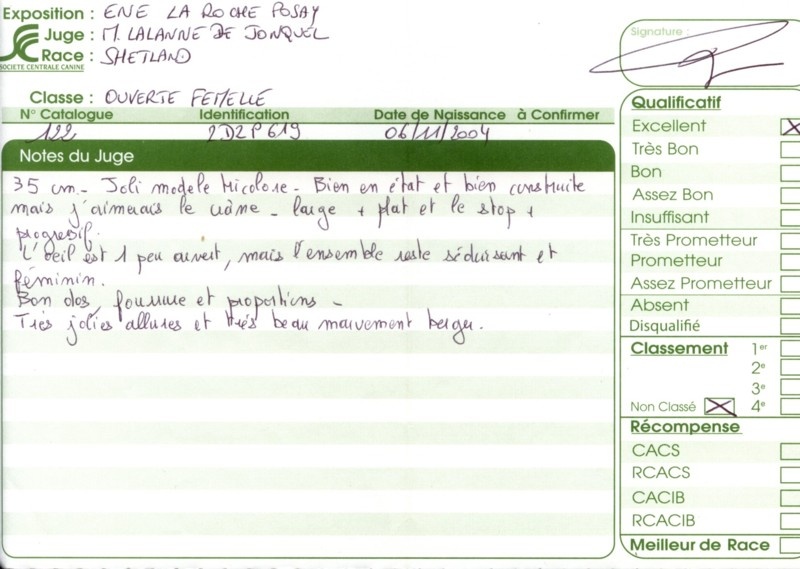 Exposition : ENE LA ROCHE POSAY
Juge : M. LALANNE DE JONQUEL
Race : SHETLAND
SOCIETE CENTRALE CANINE
Signature :
Classe : OUVERTE FEMELLE
N° Catalogue Identification Date de Naissance à Confirmer
122 2D2P619 06/11/2004
Notes du Juge
35 cm - Joli modele tricolore - Bien en état et bien construite
mais j'aimerais le crâne - large + plat et le stop +
progresif.
L'oeil est 1 peu ouvert, mais l'ensemble reste séduisant et
féminin.
Bon dos, fourrure et proportions -
Très jolies allures et très beau mouvement berger.
Qualificatif
Excellent
Très Bon
Bon
Assez Bon
Insuffisant
Très Prometteur
Prometteur
Assez Prometteur
Absent
Disqualifié
Classement 1er
2e
3e
Non Classé 4e
Récompense
CACS
RCACS
CACIB
RCACIB
Meilleur de Race